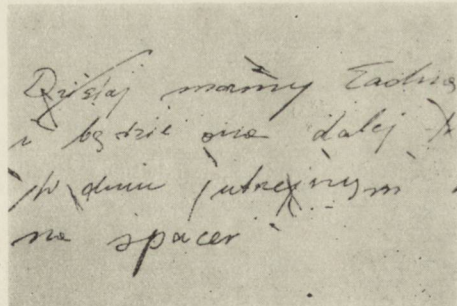 Dzisiaj mamy ładną
i będzie ona dalej
w dniu jutrzejnym
na spacer